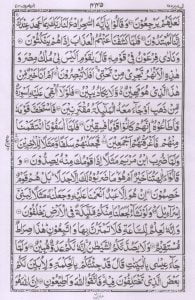 لَعَلَّهُمْ يَرْجِعُوْنَ وَقَالُوْا يٰٓاَيُّهَ السّٰحِرُ ادْعُ لَنَا رَبَّكَ بِمَا عَهِدَ عِنْدَكَ
اِنَّنَا لَمُهْتَدُوْنَ فَلَمَّا كَشَفْنَا عَنْهُمُ الْعَذَابَ اِذَا هُمْ يَنْكُثُوْنَ
وَنَادٰى فِرْعَوْنُ فِيْ قَوْمِهٖ قَالَ يٰقَوْمِ اَلَيْسَ لِيْ مُلْكُ مِصْرَ وَ
هٰذِهِ الْاَنْهٰرُ تَجْرِيْ مِنْ تَحْتِيْ اَفَلَا تُبْصِرُوْنَ اَمْ اَنَا خَيْرٌ مِّنْ
هٰذَا الَّذِيْ هُوَ مَهِيْنٌ وَّلَا يَكَادُ يُبِيْنُ فَلَوْلَآ اُلْقِيَ عَلَيْهِ اَسْوِرَةٌ
مِّنْ ذَهَبٍ اَوْ جَآءَ مَعَهُ الْمَلٰٓئِكَةُ مُقْتَرِنِيْنَ فَاسْتَخَفَّ قَوْمَهٗ
فَاَطَاعُوْهُ اِنَّهُمْ كَانُوْا قَوْمًا فٰسِقِيْنَ فَلَمَّآ اٰسَفُوْنَا انْتَقَمْنَا
مِنْهُمْ فَاَغْرَقْنٰهُمْ اَجْمَعِيْنَ فَجَعَلْنٰهُمْ سَلَفًا وَّمَثَلًا لِّلْاٰخِرِيْنَ
وَلَمَّا ضُرِبَ ابْنُ مَرْيَمَ مَثَلًا اِذَا قَوْمُكَ مِنْهُ يَصِدُّوْنَ وَ
قَالُوْٓا ءَاٰلِهَتُنَا خَيْرٌ اَمْ هُوَ مَا ضَرَبُوْهُ لَكَ اِلَّا جَدَلًا بَلْ هُمْ قَوْمٌ
خَصِمُوْنَ اِنْ هُوَ اِلَّا عَبْدٌ اَنْعَمْنَا عَلَيْهِ وَجَعَلْنٰهُ مَثَلًا لِّبَنِيْٓ
اِسْرَآءِيْلَ وَلَوْ نَشَآءُ لَجَعَلْنَا مِنْكُمْ مَّلٰٓئِكَةً فِي الْاَرْضِ يَخْلُفُوْنَ
وَاِنَّهٗ لَعِلْمٌ لِّلسَّاعَةِ فَلَا تَمْتَرُنَّ بِهَا وَاتَّبِعُوْنِ هٰذَا صِرَاطٌ
مُّسْتَقِيْمٌ وَلَا يَصُدَّنَّكُمُ الشَّيْطٰنُ اِنَّهٗ لَكُمْ عَدُوٌّ مُّبِيْنٌ وَلَمَّا
جَآءَ عِيْسٰى بِالْبَيِّنٰتِ قَالَ قَدْ جِئْتُكُمْ بِالْحِكْمَةِ وَلِاُبَيِّنَ لَكُمْ
بَعْضَ الَّذِيْ تَخْتَلِفُوْنَ فِيْهِ فَاتَّقُوا اللّٰهَ وَاَطِيْعُوْنِ اِنَّ اللّٰهَ